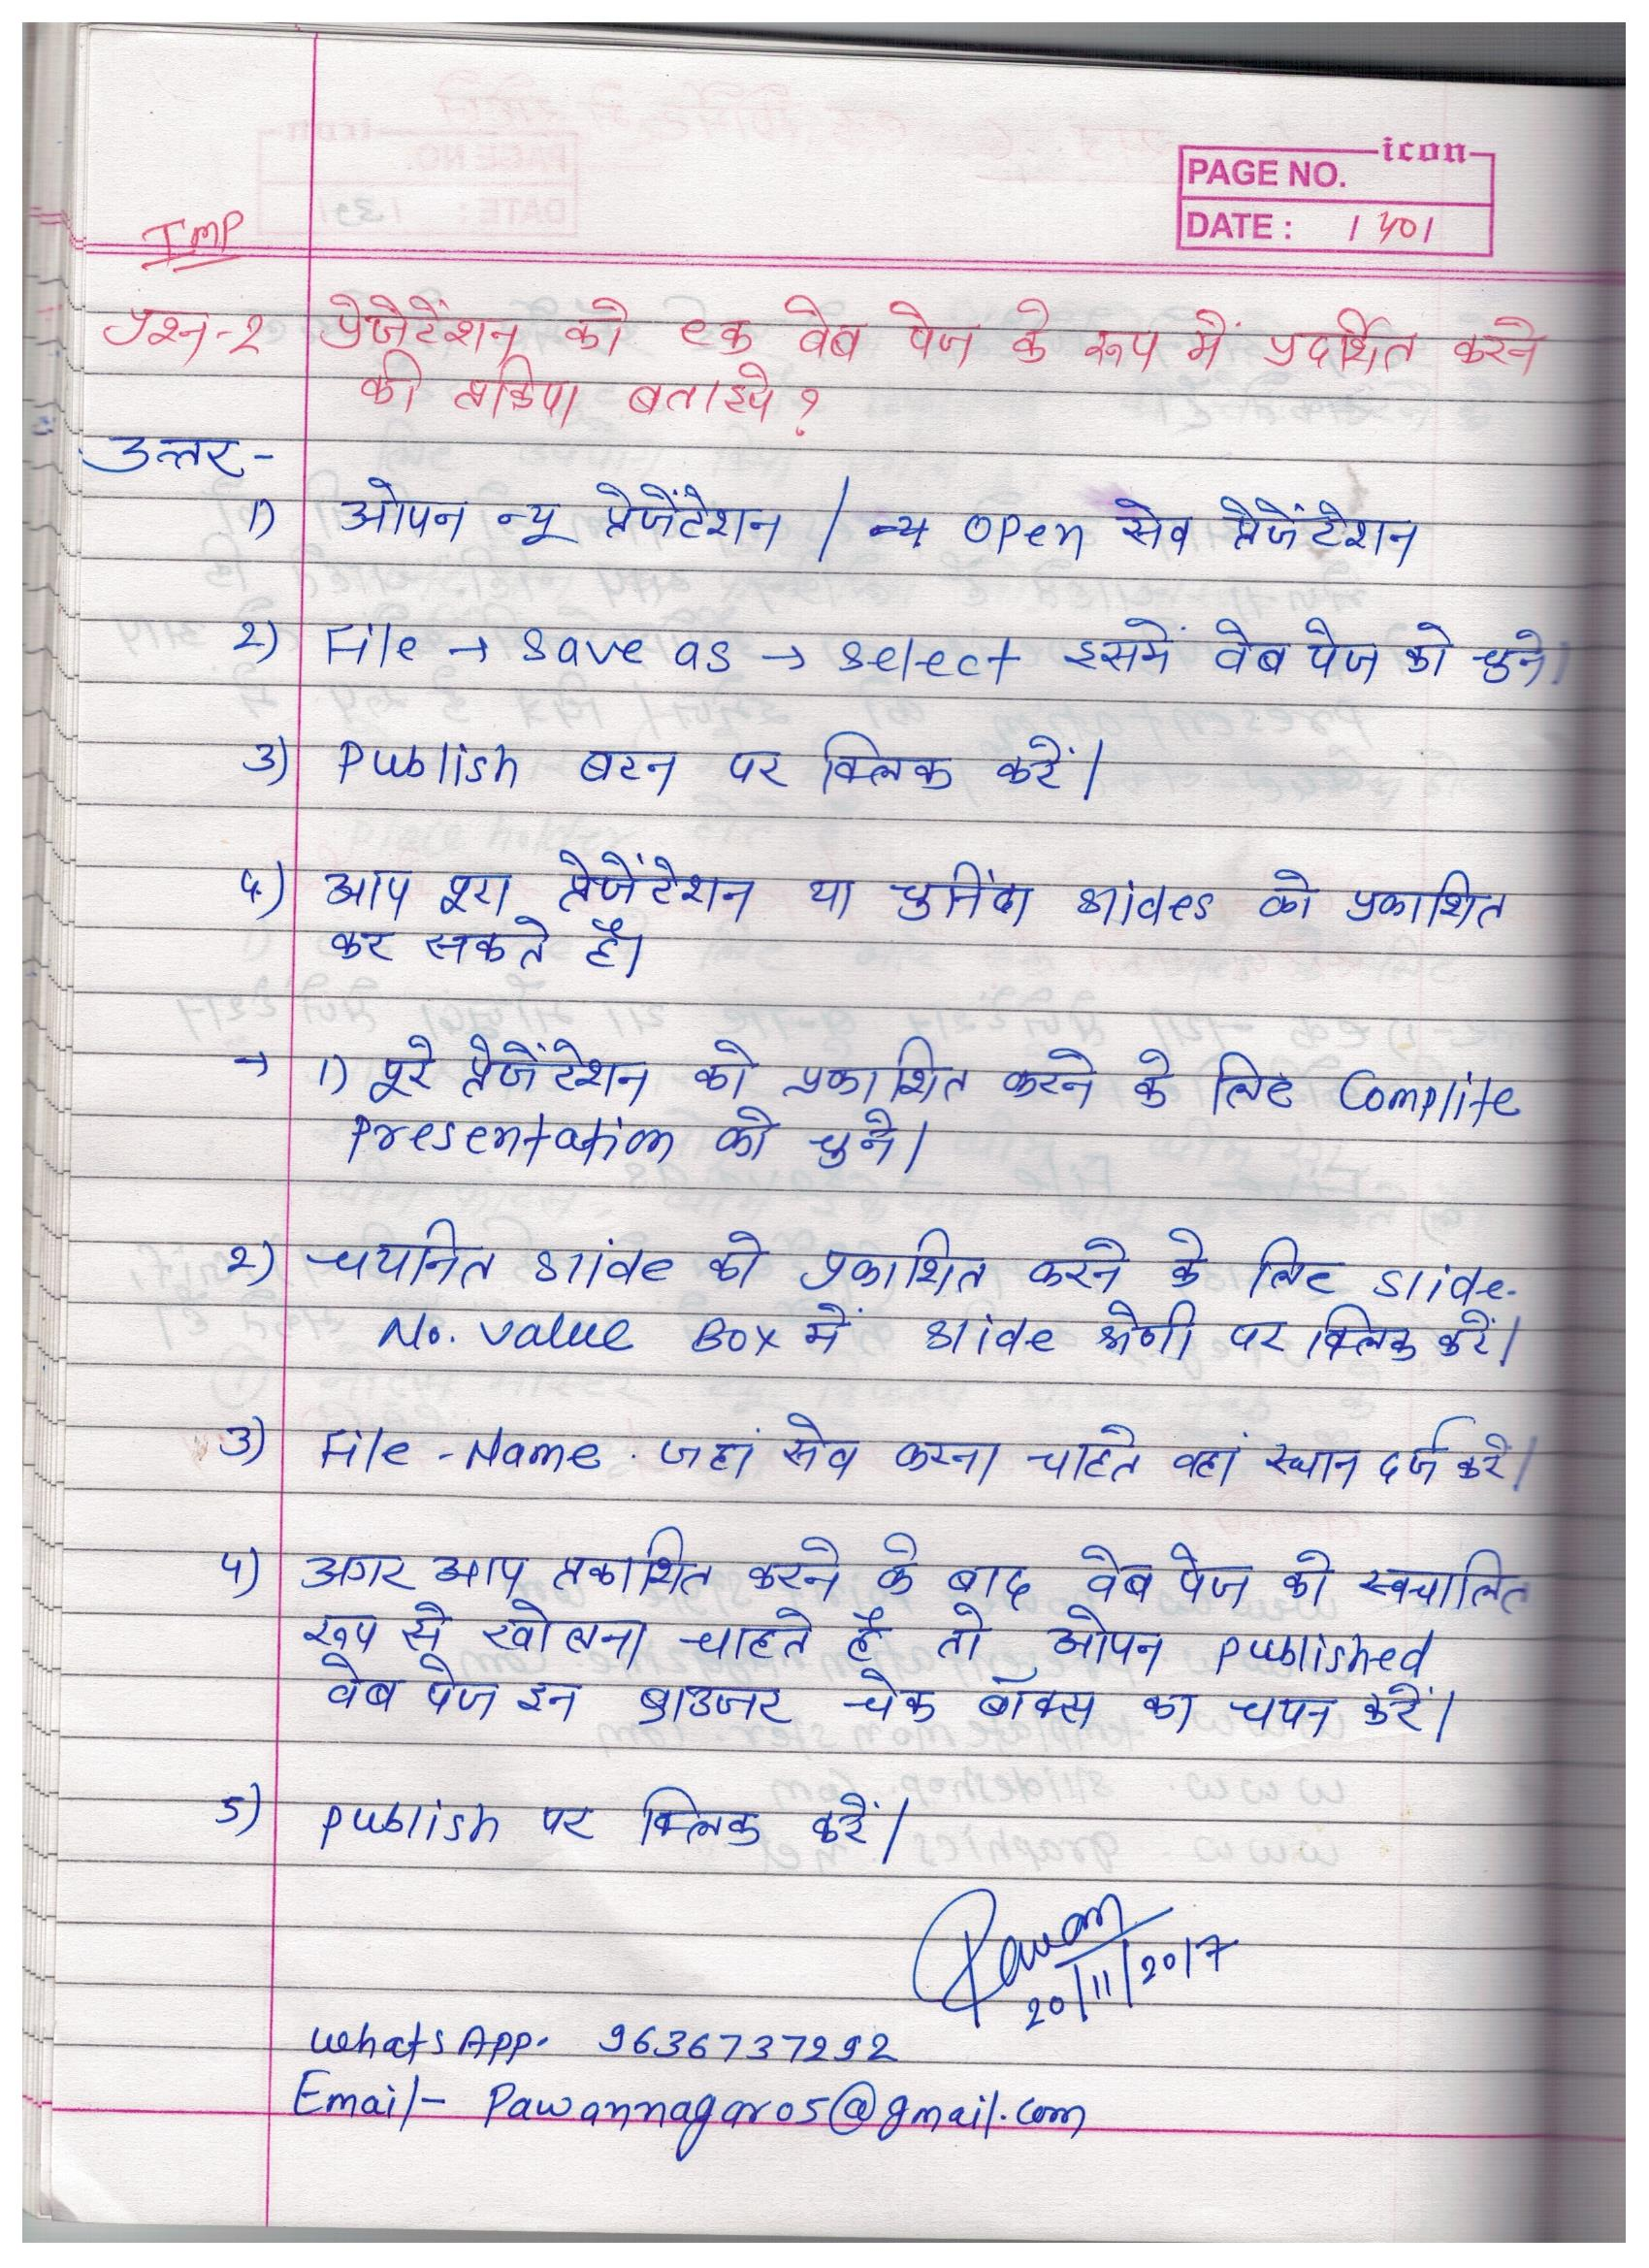 icon
PAGE NO.
DATE : 1401
IMP
प्रश्न-2 प्रेजेटेंशन को एक वेब पेज के रूप में प्रदर्शित करने
की प्रक्रिया बताइये?
उत्तर-
1) ओपन न्यू प्रेजेंटेशन / → open सेव प्रेजेंटेशन
2) File → Save as → select इसमें वेब पेज को चुने।
3) Publish बटन पर क्लिक करें।
4) आप पूरा प्रेजेंटेशन या चुनिंदा slides को प्रकाशित
कर सकते है।
→ 1) पूरे प्रेजेंटेशन को प्रकाशित करने के लिए Complite
Presentation को चुने।
2) चयनित slide को प्रकाशित करने के लिए slide-
No. value Box में slide श्रेणी पर क्लिक करें।
3) File-Name. जहां सेव करना चाहते वहां स्थान दर्ज करे।
4) अगर आप प्रकाशित करने के बाद वेब पेज को स्वचालित
रूप से खोलना चाहते है तो ओपन published
वेब पेज इन ब्राउजर चेक बॉक्स का चयन करें।
5) publish पर क्लिक करें।
Pawan
20/11/2017
WhatsApp. 9636737292
Email- Pawannagar05@gmail.com